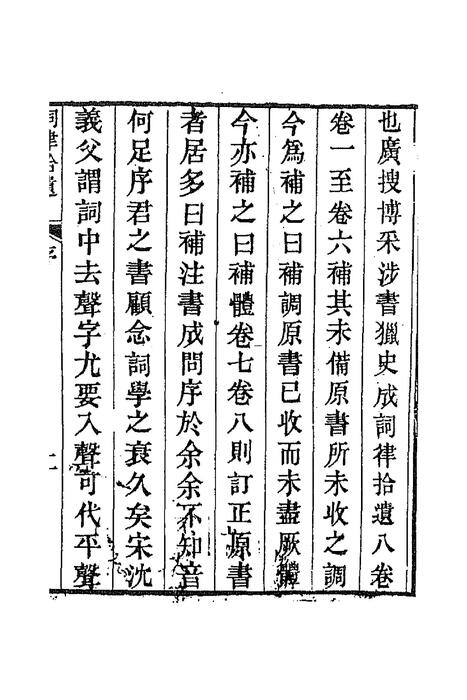 也廣搜博采涉書獵史成詞律拾遺八卷
卷一至卷六補其未備原書所未收之調
今爲補之曰補調原書已收而未盡厥體
今亦補之曰補體卷七卷八則訂正原書
者居多曰補注書成問序於余余不知音
何足序君之書顧念詞學之衰久矣宋沈
義父謂詞中去聲字尤要入聲可代平聲
詞律拾遺 序 二